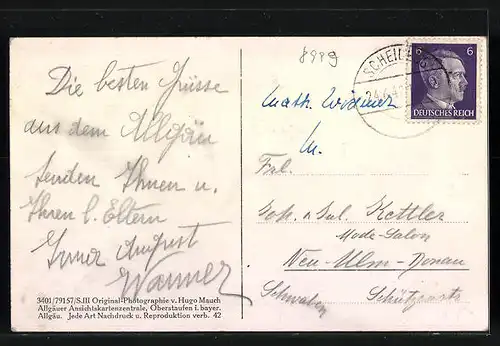 8989
SCHEIDEGG
24.
6 6
DEUTSCHES REICH
Die besten Grüsse
aus dem Allgäu
senden Ihnen u.
Ihren l. Eltern
August
Wanner
Math. Wanner
u.
Frl.
Joh. u. Kettler
Mode-Salon
Neu-Ulm-Donau
Schwaben Schützenstr
3401/79157/S.III Original-Photographie v. Hugo Mauch
Allgäuer Ansichtskartenzentrale, Oberstaufen i. bayer.
Allgäu. Jede Art Nachdruck u. Reproduktion verb. 42